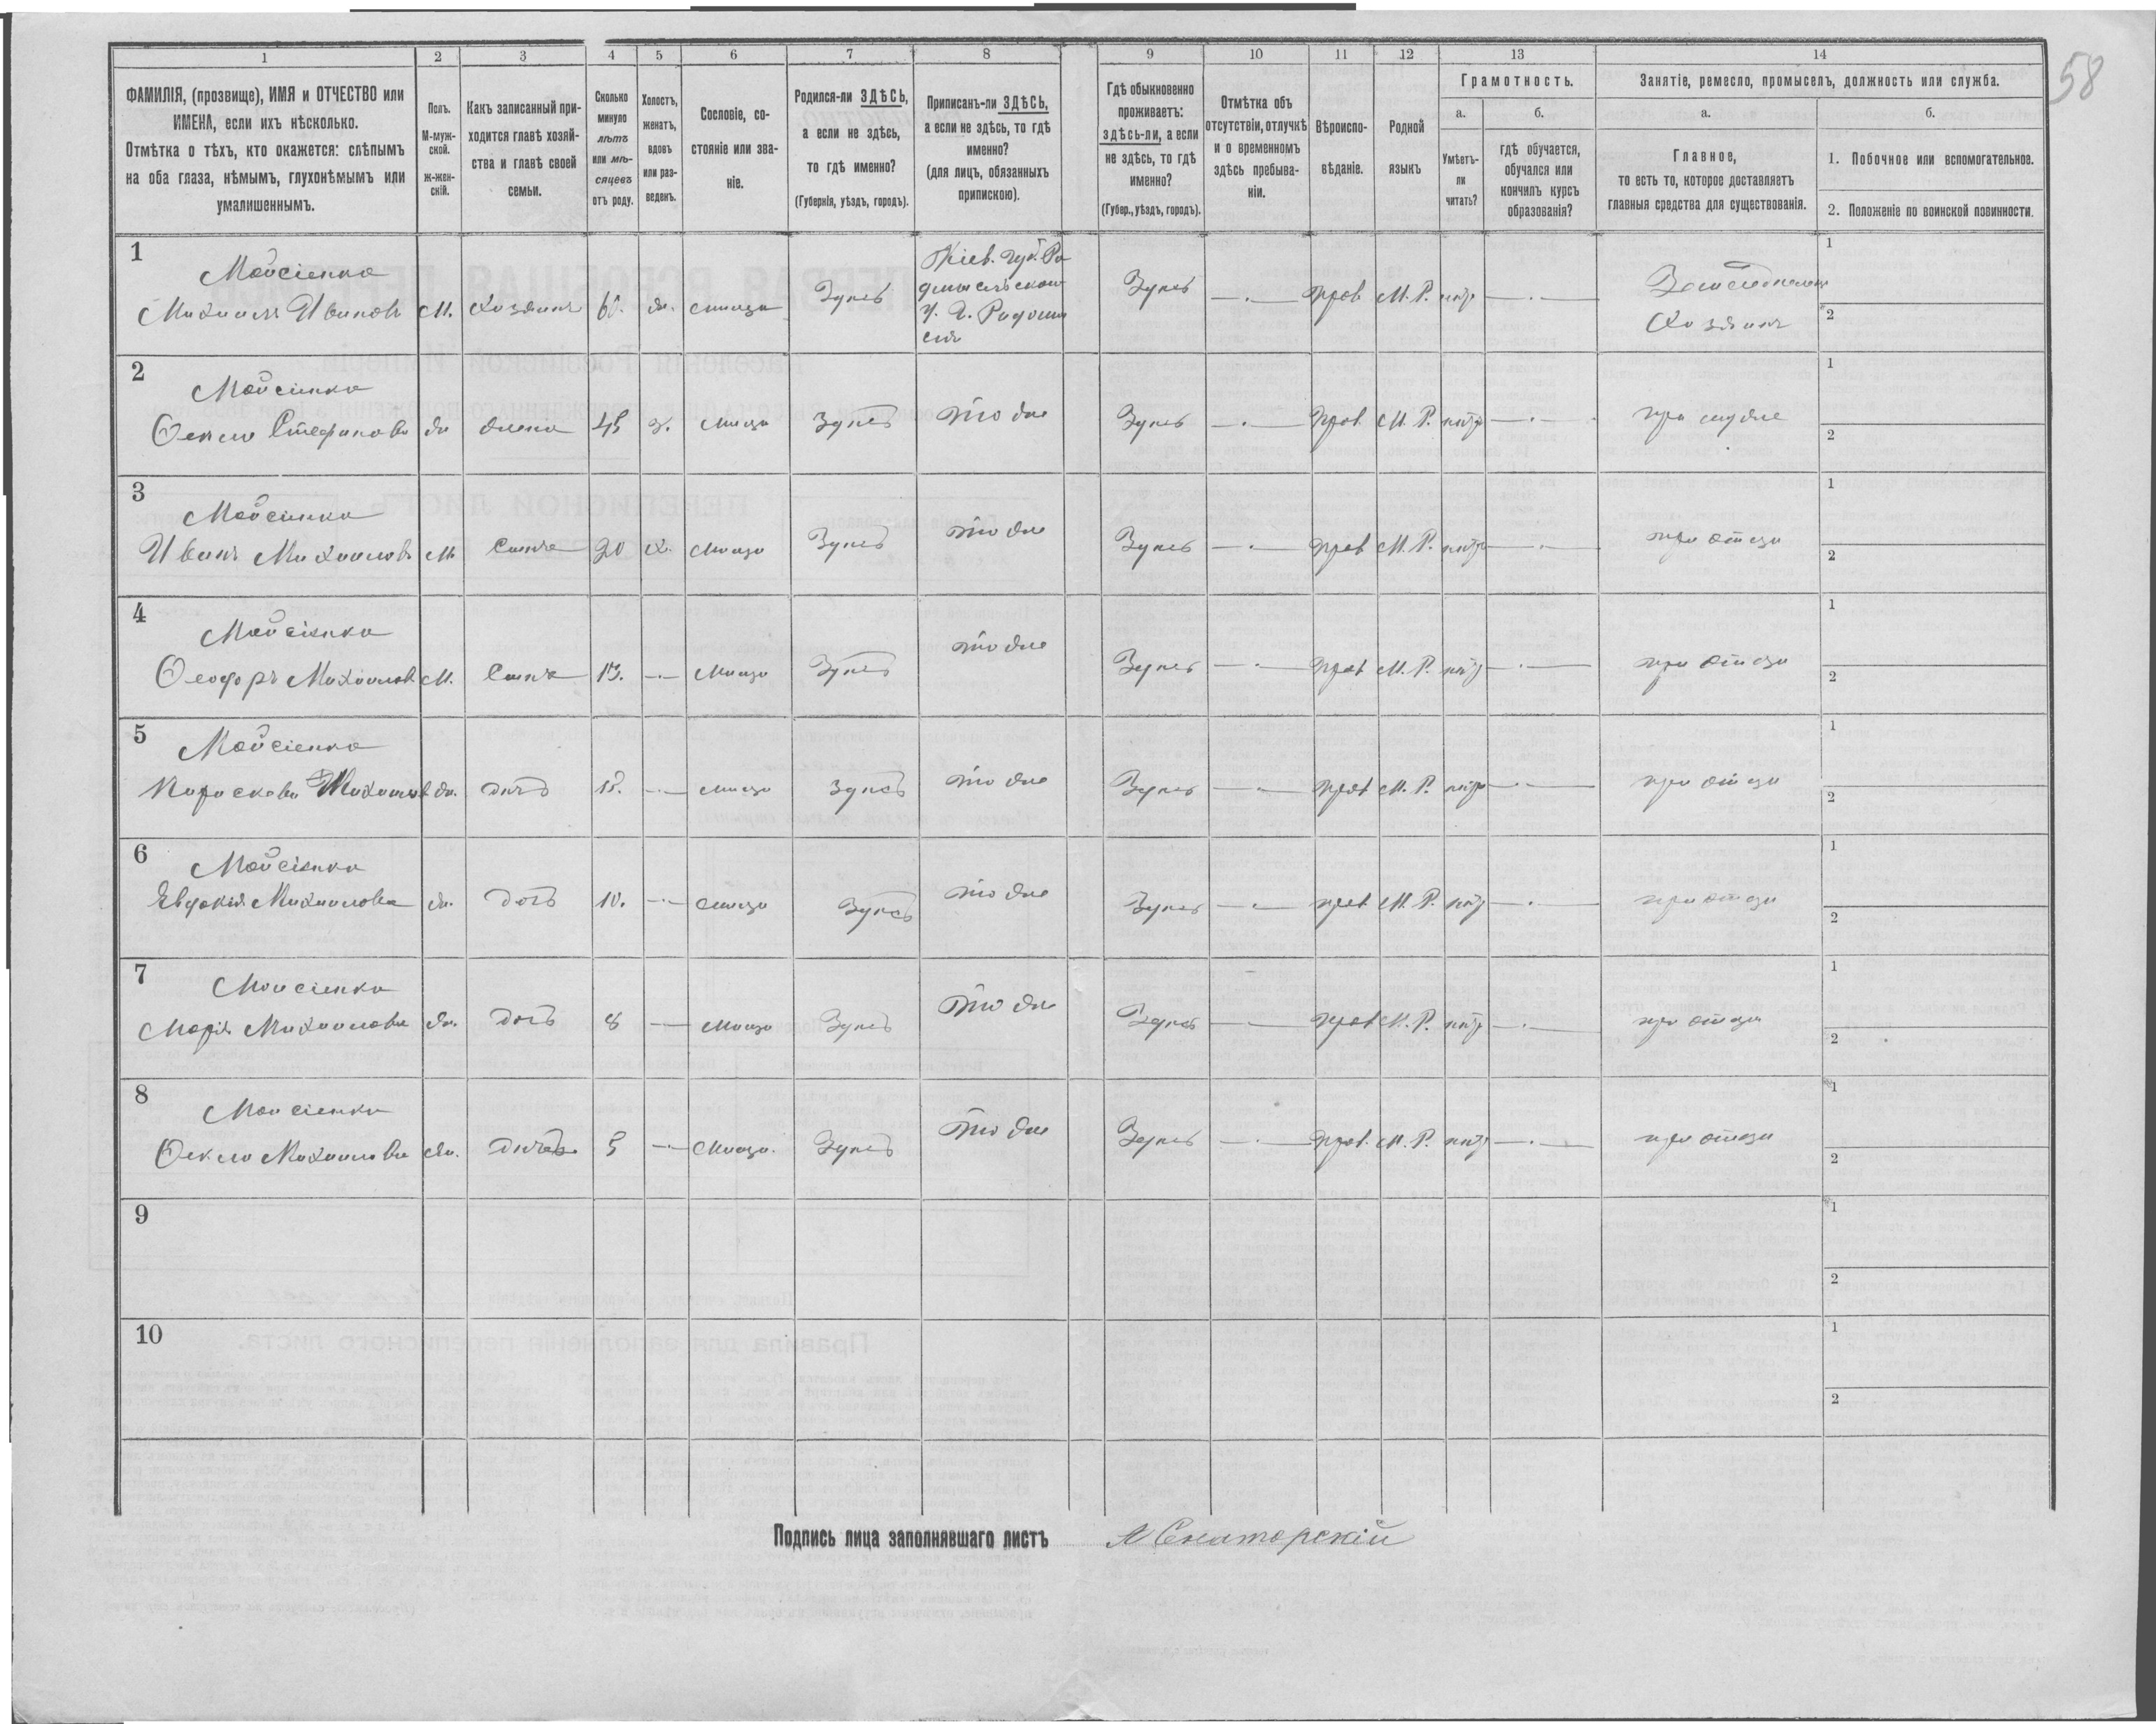 58
1 2 3 4 5 6 7 8 9 10 11 12 13 14
ФАМИЛІЯ, (прозвище), ИМЯ и ОТЧЕСТВО или
ИМЕНА, если ихъ нѣсколько.
Отмѣтка о тѣхъ, кто окажется: слѣпымъ
на оба глаза, нѣмымъ, глухонѣмымъ или
умалишеннымъ.
Полъ.
М-муж-
ской.
ж-жен-
скій.
Какъ записанный при-
ходится главѣ хозяй-
ства и главѣ своей
семьи.
Сколько
минуло
лѣтъ
или мѣ-
сяцевъ
отъ роду.
Холостъ,
женатъ,
вдовъ
или раз-
веденъ.
Сословіе, со-
стояніе или зва-
ніе.
Родился-ли ЗДѢСЬ,
а если не здѣсь,
то гдѣ именно?
(Губернія, уѣздъ, городъ).
Приписанъ-ли ЗДѢСЬ,
а если не здѣсь, то гдѣ
именно?
(для лицъ, обязанныхъ
припискою).
Гдѣ обыкновенно
проживаетъ:
здѣсь-ли, а если
не здѣсь, то гдѣ
именно?
(Губер., уѣздъ, городъ).
Отмѣтка объ
отсутствіи, отлучкѣ
и о временномъ
здѣсь пребыва-
ніи.
Вѣроиспо-
вѣданіе.
Родной
языкъ
Грамотность.
а.
Умѣетъ-
ли
читать?
б.
гдѣ обучается,
обучался или
кончилъ курсъ
образованія?
Занятіе, ремесло, промыселъ, должность или служба.
а.
Главное,
то есть то, которое доставляетъ
главныя средства для существованія.
б.
1. Побочное или вспомогательное.
2. Положеніе по воинской повинности.
1
Мойсіенко
Михаилъ Ивановъ М. Хозяинъ
Кіев. губ. Ра
Здѣсь
Здѣсь прав М. Р. нѣтъ
Хозяинъ
1
2
2
Мойсіенко
Текла Стефанова жена 45 Здѣсь то же Здѣсь Прав. М. Р. нѣтъ
1
2
3
Мойсіенко
Иванъ Михаиловъ М. Сынъ 20 Х. Здѣсь то же Здѣсь прав М. Р. нѣтъ при отцѣ
1
2
4
Мойсіенко
Ѳеодоръ Михаилов М. Сынъ Здѣсь то же Здѣсь прав М. Р. нѣтъ при отцѣ
1
2
5
Мойсіенко
Параскева Михаилов Здѣсь то же Здѣсь прав М. Р. нѣтъ при отцѣ
1
2
6
Мойсіенко
Евдокія Михаилова дочь 10. Здѣсь то же Здѣсь прав. М. Р. нѣтъ при отцѣ
1
2
7
Мойсіенко
Марія Михаилова дочь 8 Здѣсь то же Здѣсь прав М. Р. нѣтъ при отцѣ
1
2
8
Мойсіенко
Текла Михаилова 5 Здѣсь то же Здѣсь прав. М. Р. нѣтъ при отцѣ
1
2
9
1
2
10
1
2
Подпись лица заполнявшаго листъ Сенаторскій